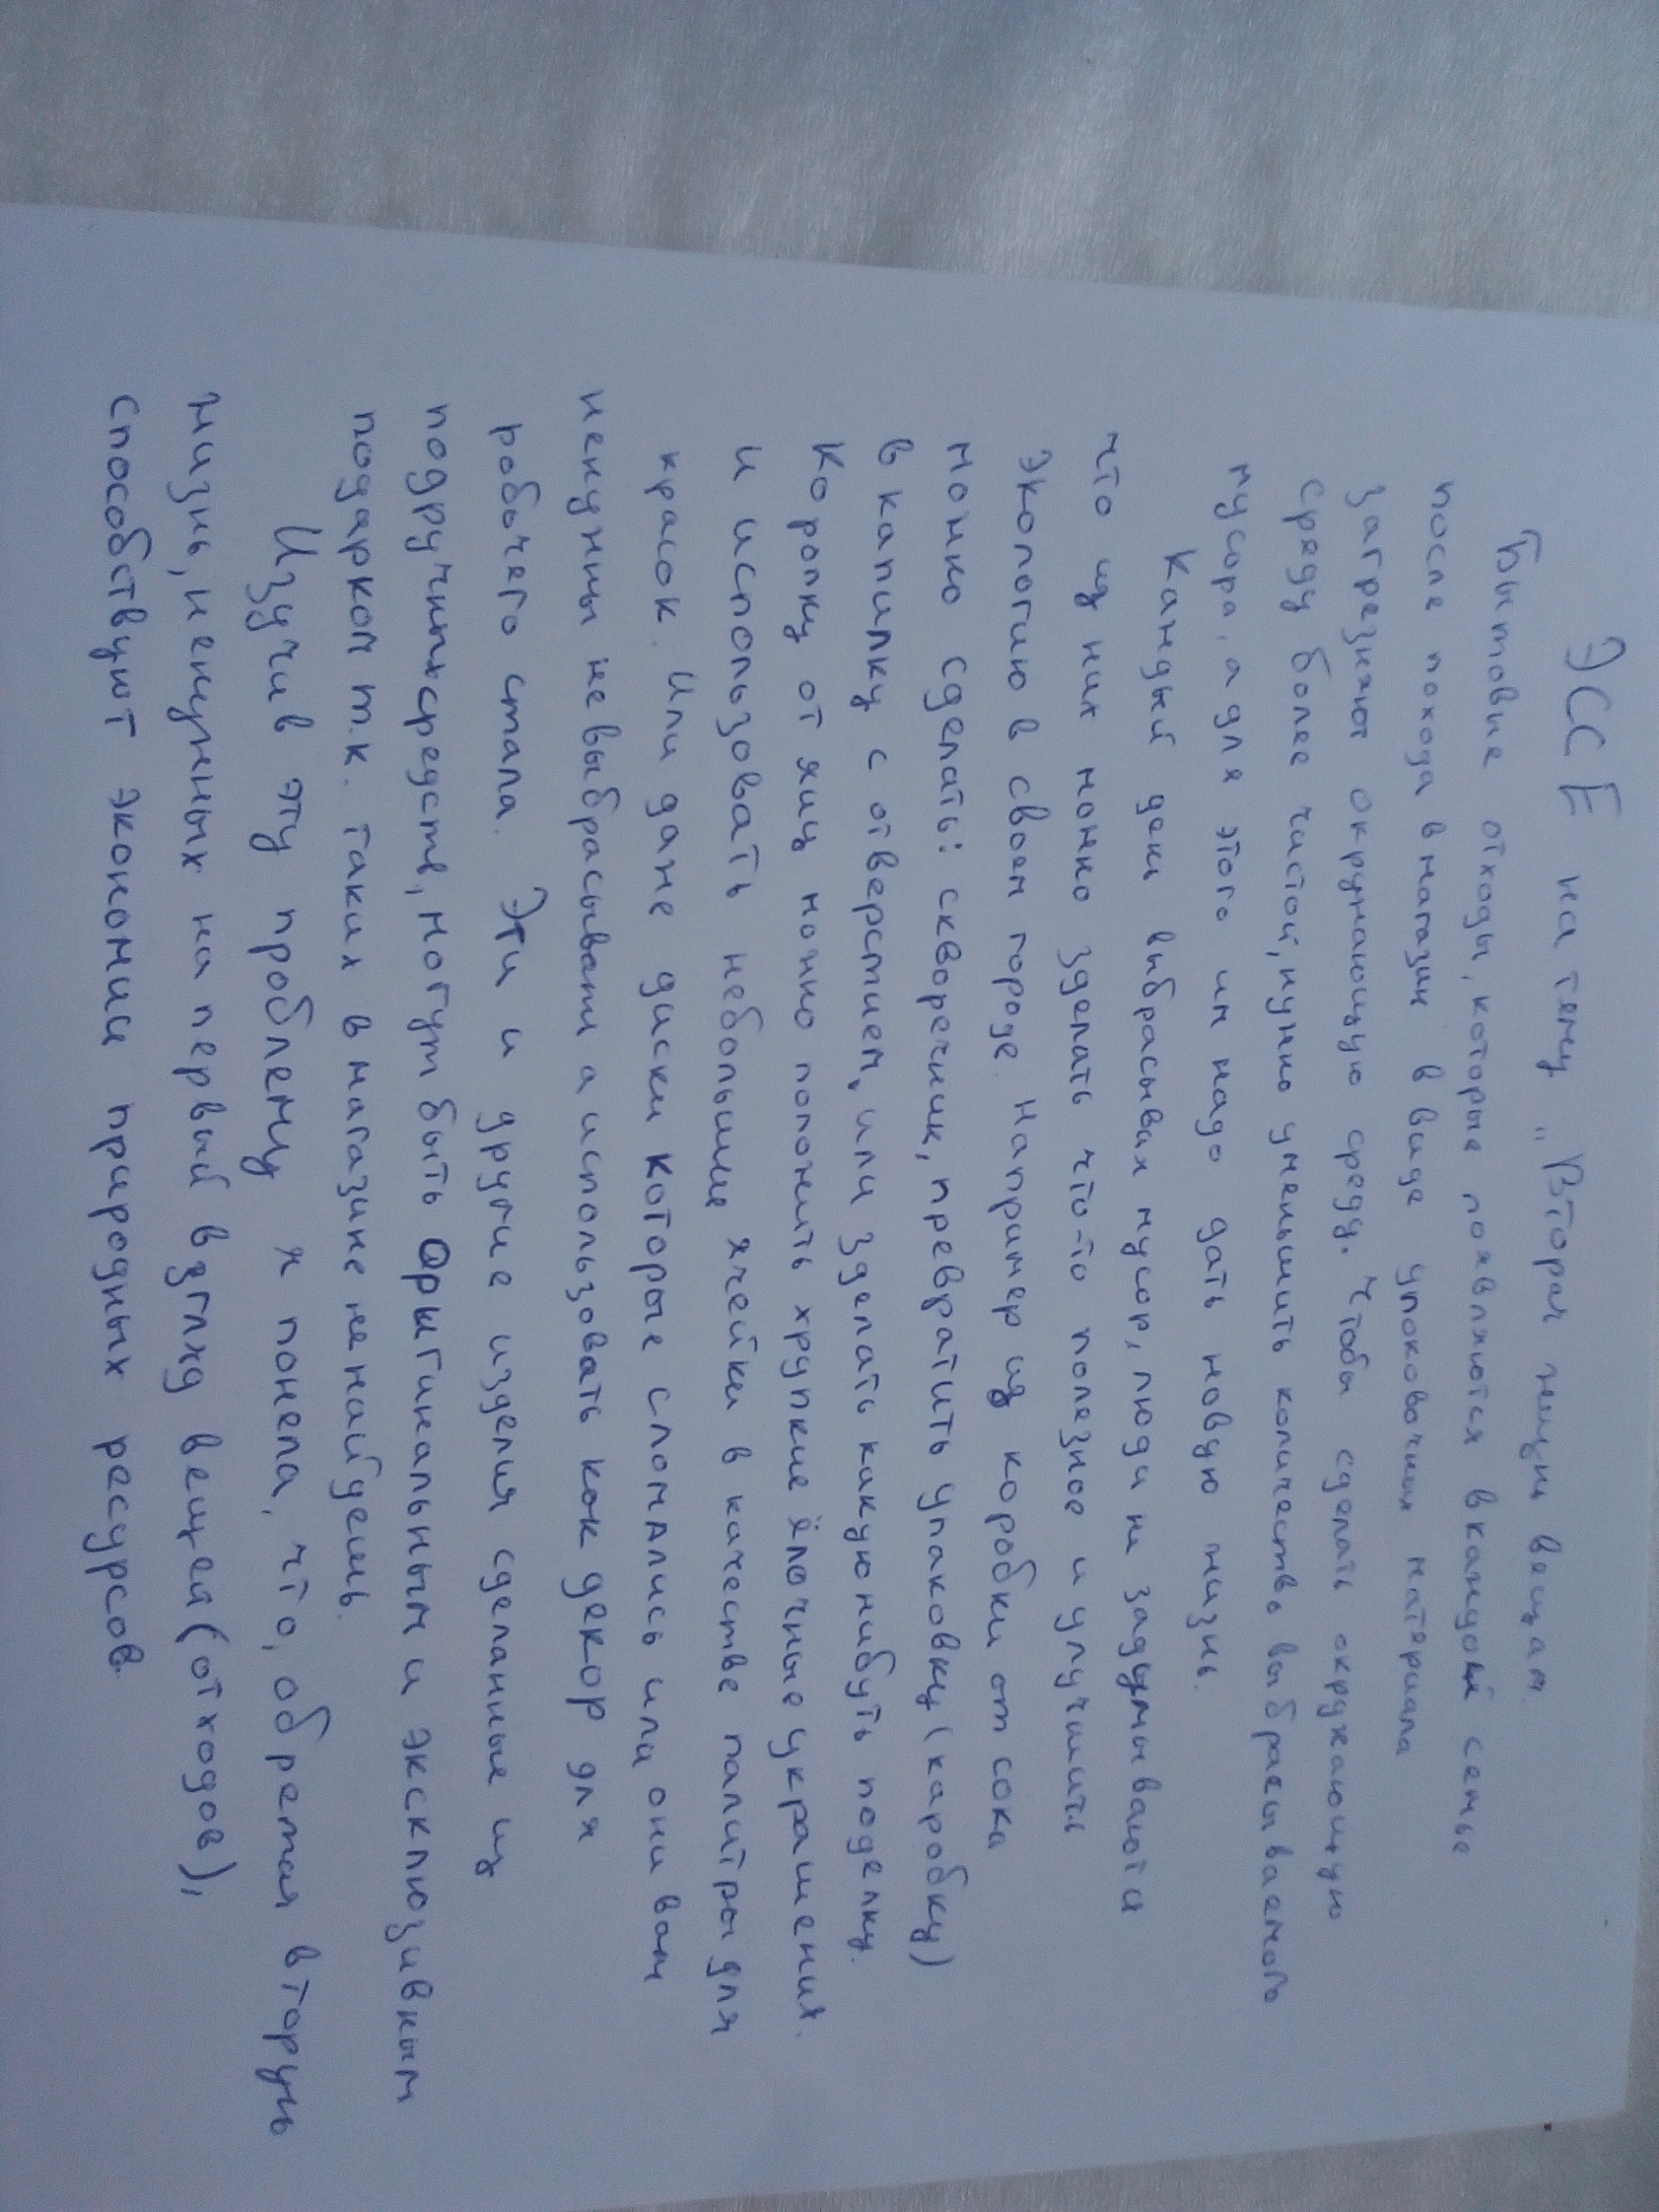 ЭССЕ на тему „Вторая жизнь вещам
Бытовые отходы, которые появляются в каждой семье
после похода в магазин в виде упоковочных матяриала
загрезняют окружающую среду. Чтобы сделать окружающую
среду более чистой, нужно уменьшить количество выбрасываемого
мусора, а для этого им надо дать новую жизнь.
Каждый день выбрасывая мусор, люди не задумываются
что из них можно зделать что-то полезное и улучшить
экологию в своем городе. Например из коробки от сока
можно сделать: скворечник, превратить упаковку (каробку)
в капилку с отверстием, или зделать какуюнибуть поделку.
Коропку от яиц можно положить хрупкие ёлочные украшения.
и использовать небольшие ячейки в качестве палитры для
красок. Или даже диски которые сломались или они вам
ненужны невыбрасывать а использовать как декор для
робочего стала. Эти и другие изделия сделанные из
подручныхсредств, могут быть оригинальным и эксклюзивным
подарком т.к. таких в магазине ненайдешь.
Изучив эту проблему я понела, что, обретая вторую
жизнь, ненужных на первый взгляд вещей (отходов),
способствуют экономии природных ресурсов.